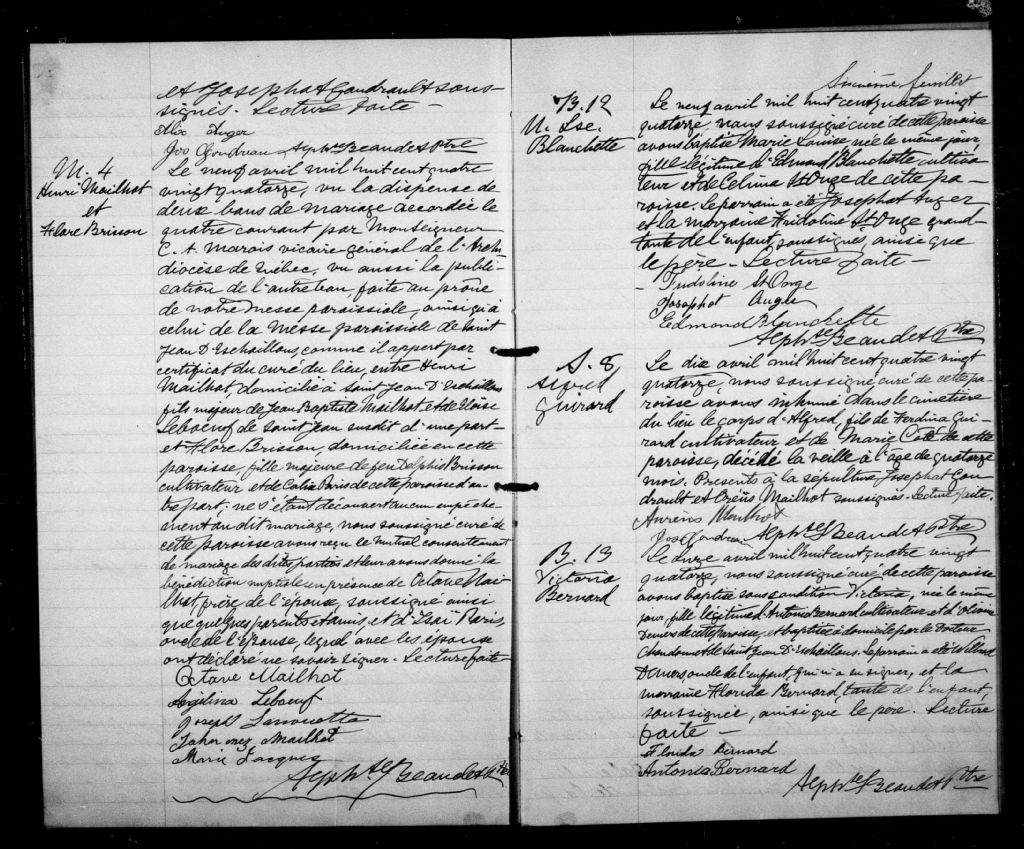 et Josephat Goudrault sous-
signés. Lecture faite —
Alix Auger
Jos Goudreau Alph. Beaudet Ptre
M. 4
Henri Mailhot
et
Flore Brisson
Le neuf avril mil huit cent quatre
vingt quatorze, vu la dispense de
deux bans de mariage accordée le
quatre courant par Monseigneur
C. A. Marois vicaire général de l'Archi
diocèse de Québec, vu aussi la publi-
cation de l'autre ban, faite au prône
de notre messe paroissiale, ainsi qu'à
celui de la Messe paroissiale de Saint
Jean D'Eschaillons, comme il appert par
certificat du curé du lieu, entre Henri
Mailhot, domicilié à Saint Jean D'Eschaillons
fils majeur de Jean Baptiste Mailhot, et de Eloïse
Leboeuf de Saint Jean susdit d'une part
et Flore Brisson, domiciliée en cette
paroisse, fille majeure de feu Delphis Brisson
cultivateur et de Paris de cette paroisse d'au
tre part; ne s'étant découvert aucun empêche-
ment au dit mariage, nous soussigné curé de
cette paroisse avons reçu le mutuel consentement
de mariage des dites parties et leur avons donné la
bénédiction nuptiale en présence de Octave Mai-
lhot, frère de l'époux, soussigné ainsi
que quelques parents et amis, et d'Isaï Paris,
oncle de l'épouse, lequel avec les époux
ont déclaré ne savoir signer. Lecture faite
Octave Mailhot
Leboeuf
Joseph
Mailhot
Marie Jacques
Alph. Beaudet Ptre
Sixième feuillet
B. 12
M. Lse.
Blanchette
Le neuf avril mil huit cent quatre vingt
quatorze, nous soussigné curé de cette paroisse
avons baptisé Marie Louise née le même jour,
fille légitime d'Edmond Blanchette cultiva
teur et de Célina St Onge de cette pa-
roisse. Le parrain a été Josephat Auger
et la marraine Fridoline St Onge grand-
tante de l'enfant, soussignés, ainsi que
le père — Lecture faite —
Fridoline St Onge
Josaphat Auger
Edmond Blanchette
Alph. Beaudet Ptre
S. 8
Alfred
Guirard
Le dix avril mil huit cent quatre vingt
quatorze, nous soussigné curé de cette pa-
roisse avons inhumé dans le cimetière
du lieu le corps d'Alfred, fils de Ferdina Gui
rard cultivateur et de Marie Coté de cette
paroisse, décédé la veille à l'âge de quatorze
mois. Présents à la sépulture Josephat Gou
drault et Mailhot soussignés. Lecture faite.
Mailhot
Jos Goudreau Alph. Beaudet Ptre
B. 13
Victoria
Bernard
Le onze avril mil huit cent quatre vingt
quatorze, nous soussigné curé de cette paroisse
avons baptisé sous condition Victoria, née le même
jour, fille légitime d'Antonis Bernard cultivateur et d'
Demers de cette paroisse, et baptisée à domicile par le Docteur
Chandonnet de Saint Jean D'Eschaillons. Le parrain a été
Demers, oncle de l'enfant, qui n'a su signer, et la
marraine Florida Bernard, tante de l'enfant,
soussignée, ainsi que le père. Lecture
faite —
Florida Bernard
Antonis Bernard
Alph. Beaudet Ptre